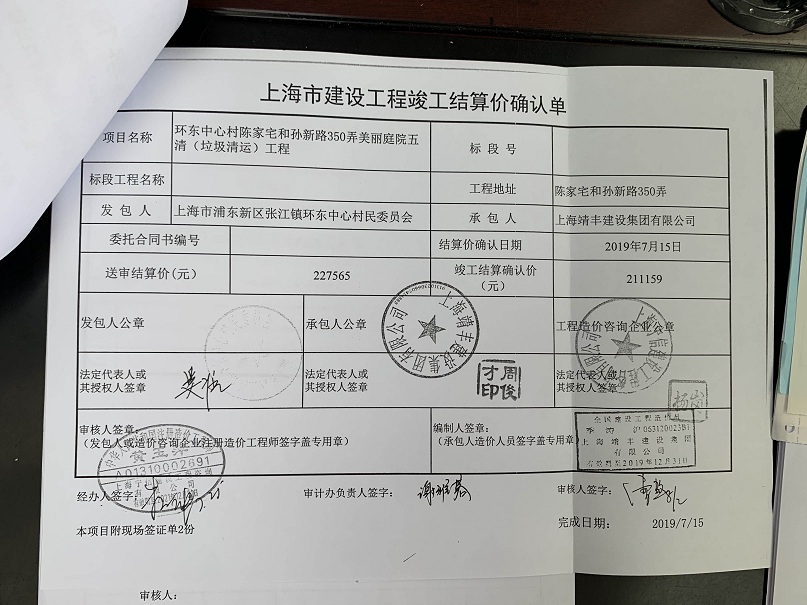 上海市建设工程竣工结算价确认单
项目名称
环东中心村陈家宅和孙新路350弄美丽庭院五
清（垃圾清运）工程
标 段 号
标段工程名称
工程地址
陈家宅和孙新路350弄
发 包 人
上海市浦东新区张江镇环东中心村民委员会
承 包 人
上海靖丰建设集团有限公司
委托合同书编号
结算价确认日期
2019年7月15日
送审结算价(元)
227565
竣工结算确认价
（元）
211159
发包人公章
承包人公章
上海靖丰建设集团有限公司
工程造价咨询企业公章
法定代表人或
其授权人签章
法定代表人或
其授权人签章
周俊
才印
法定代表人或
其授权人签章
审核人签章：
（发包人或造价咨询企业注册造价工程师签字盖专用章）
A01310002691
编制人签章：
（承包人造价人员签字盖专用章
全国建设工程造价员
上海靖丰建设集团
有限公司
有效期至2019年12月31日
经办人签字：
审计办负责人签字：
审核人签字：
本项目附现场签证单2份
完成日期：
2019/7/15
审核人：